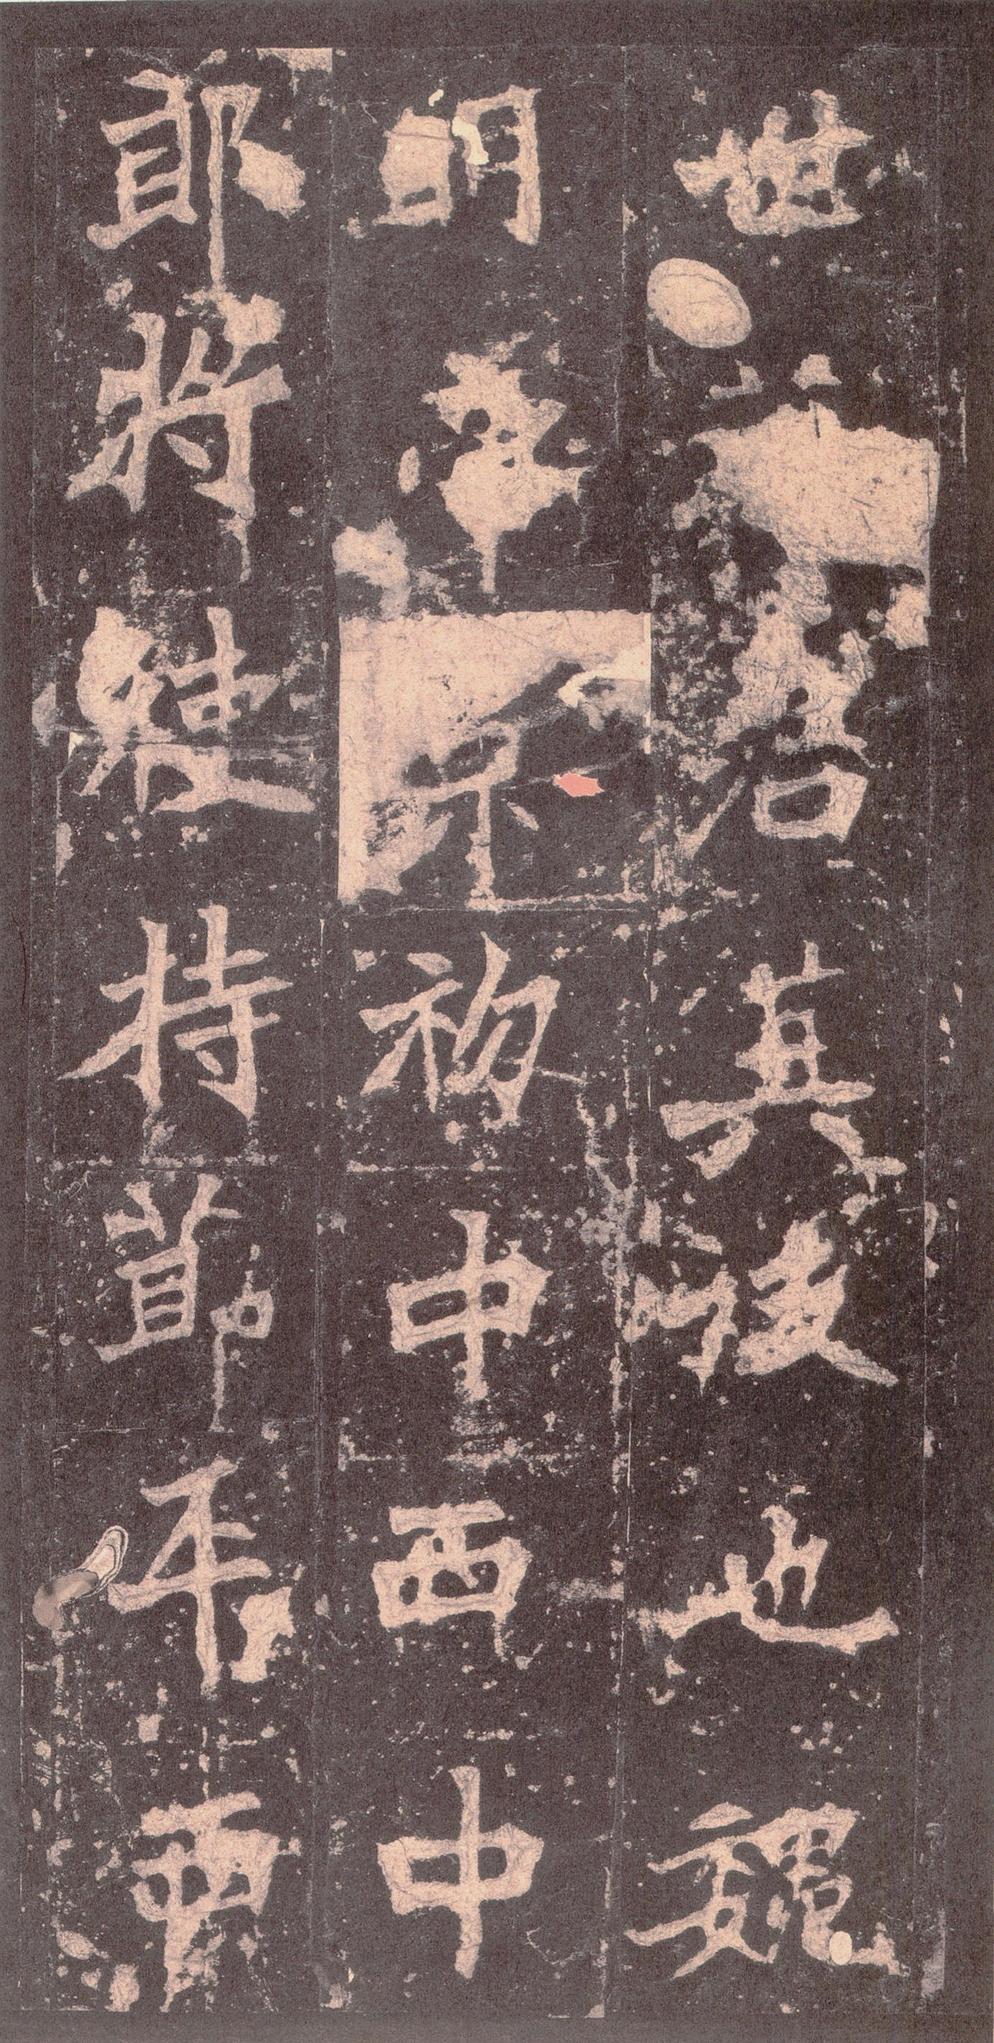 世君其後也魏
明帝景初中西中
郎將使持節平西